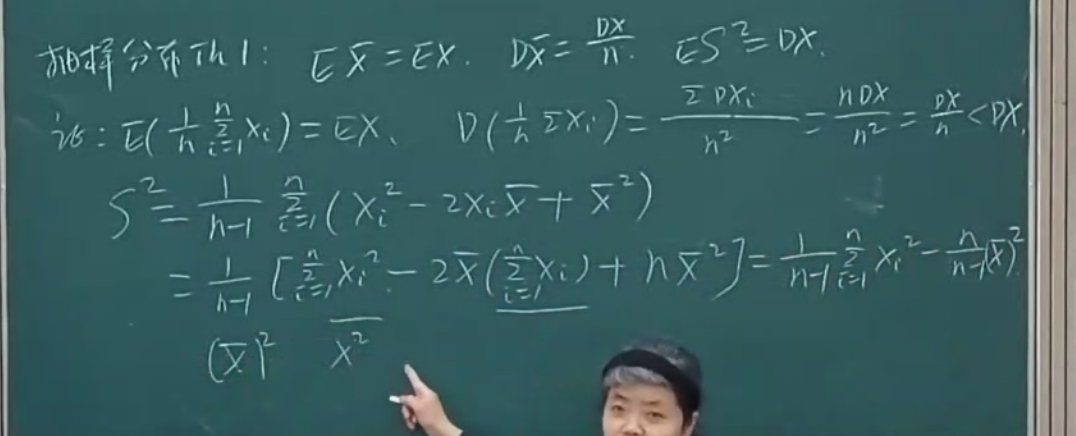 抽样分布Th1: EX̄=EX. DX̄=DX/n. ES²=DX.
证: E(1/n ∑_{i=1}^{n} Xᵢ)=EX、 D(1/n ∑Xᵢ)=∑DXᵢ/n²=nDX/n²=DX/n<DX.
S²=1/(n-1) ∑_{i=1}^{n}(Xᵢ²-2XᵢX̄+X̄²)
=1/(n-1)[∑_{i=1}^{n}Xᵢ²-2X̄(∑_{i=1}^{n}Xᵢ)+nX̄²]=1/(n-1) ∑_{i=1}^{n}Xᵢ²-n/(n-1)(X̄)².
(X̄)² \overline{X²}